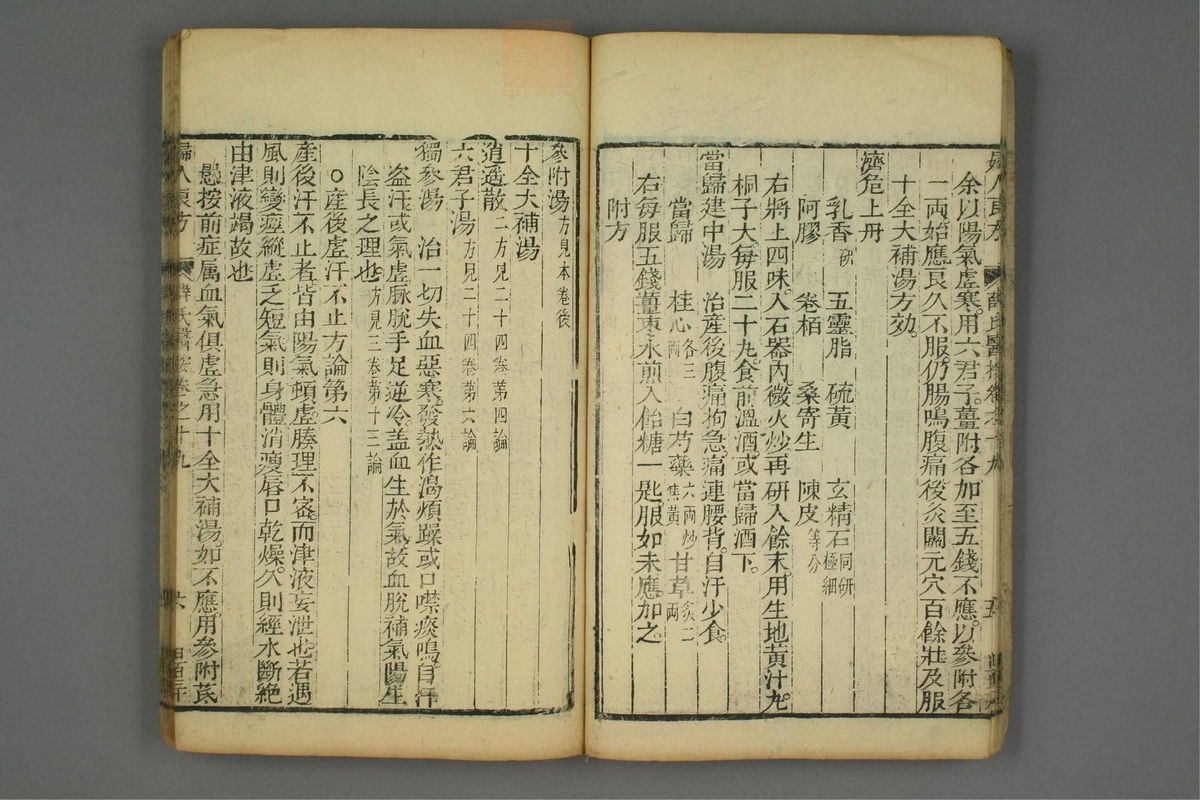 婦人良方 薛氏醫按卷之十九 五
余以陽氣虛寒。用六君子。薑附各加至五錢不應。以參附各
一兩始應。良久不服。仍腸鳴腹痛後灸關元穴百餘壯及服
十全大補湯方効。
濟危上丹
乳香研 五靈脂 硫黃 玄精石同研極細
阿膠 卷栢 桑寄生 陳皮等分
右將上四味。入石器內。微火炒。再研入餘末。用生地黃汁丸。
桐子大。每服二十丸。食前溫酒。或當歸酒下。
當歸建中湯 治產後腹痛拘急。痛連腰背。自汗少食。
當歸 桂心各三兩 白芍藥六兩炒焦黃 甘草炙二兩
右每服五錢。薑棗水煎。入飴糖一匙服。如未應。加之。
附方
參附湯方見本卷後
十全大補湯
逍遥散二方見二十四卷第四論
六君子湯方見二十四卷第六論
獨參湯 治一切失血惡寒。發熱作渴煩躁。或口噤痰鳴。自汗
盗汗。或氣虛脉脫。手足逆冷。盖血生於氣。故血脫補氣。陽生
陰長之理也方見三卷第十三論
○產後虛汗不止方論第六
產後汗不止者。皆由陽氣頓虛。腠理不密。而津液妄泄也。若遇
風則變痙。縱虛乏短氣。則身體消瘦。唇口乾燥。久則經水斷絶。
由津液竭故也
愚按前症属血氣俱虛。急用十全大補湯。如不應。用參附芪
婦人良方 薛氏醫按卷之十九 六